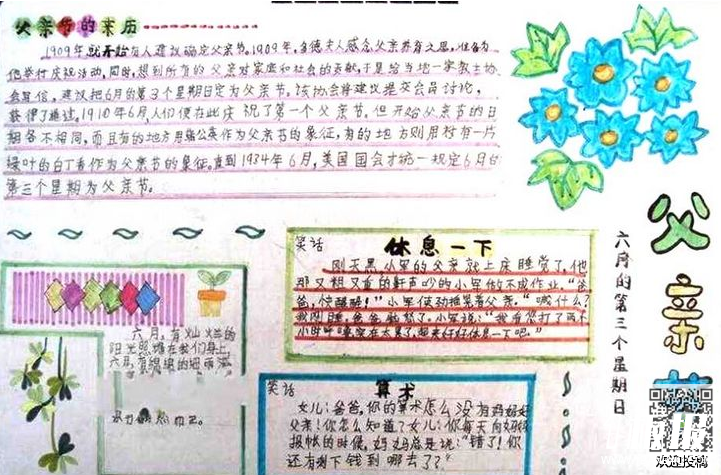 父亲节的来历
1909年就开始有人建议确定父亲节。1909年,多德夫人感念父亲养育之恩,准备为
他举行庆祝活动,同时,想到所有的父对家庭和社会的贡献,于是给当地一家教士协
会写信,建议把6月的第3个星期日定为父亲节。该协会将建议提交会员讨论,
获得了通过。1910年6月,人们便在此庆祝了第一个父亲节。但开始父亲节的日
期各不相同,而且有的地方用蒲公英作为父亲节的象征,有的地方则用衬有一片
绿叶的白丁香作为父亲节的象征。直到1934年6月,美国国会才统一规定6月的
第三个星期为父亲节。
父亲节
六月的第三个星期日
笑话
休息一下
刚天黑,小军的父亲就上床睡觉了,他
那又粗又重的鼾声吵的小军做不成作业,“爸
爸,快醒醒!”小军使劲摇晃着父亲,“喊什么?
小时呼噜,实在太累了,起来好好休息一下吧。”
六月,有灿烂的
阳光照耀在我们身上,
六月,有绵绵的细雨滋
笑话
算术
女儿:爸爸,你的算术怎么没有妈妈好
父亲:你怎么知道?女儿:你每天向妈妈
报帐的时候,妈妈总是说:“错了!你
还有剩下钱到哪去了?”